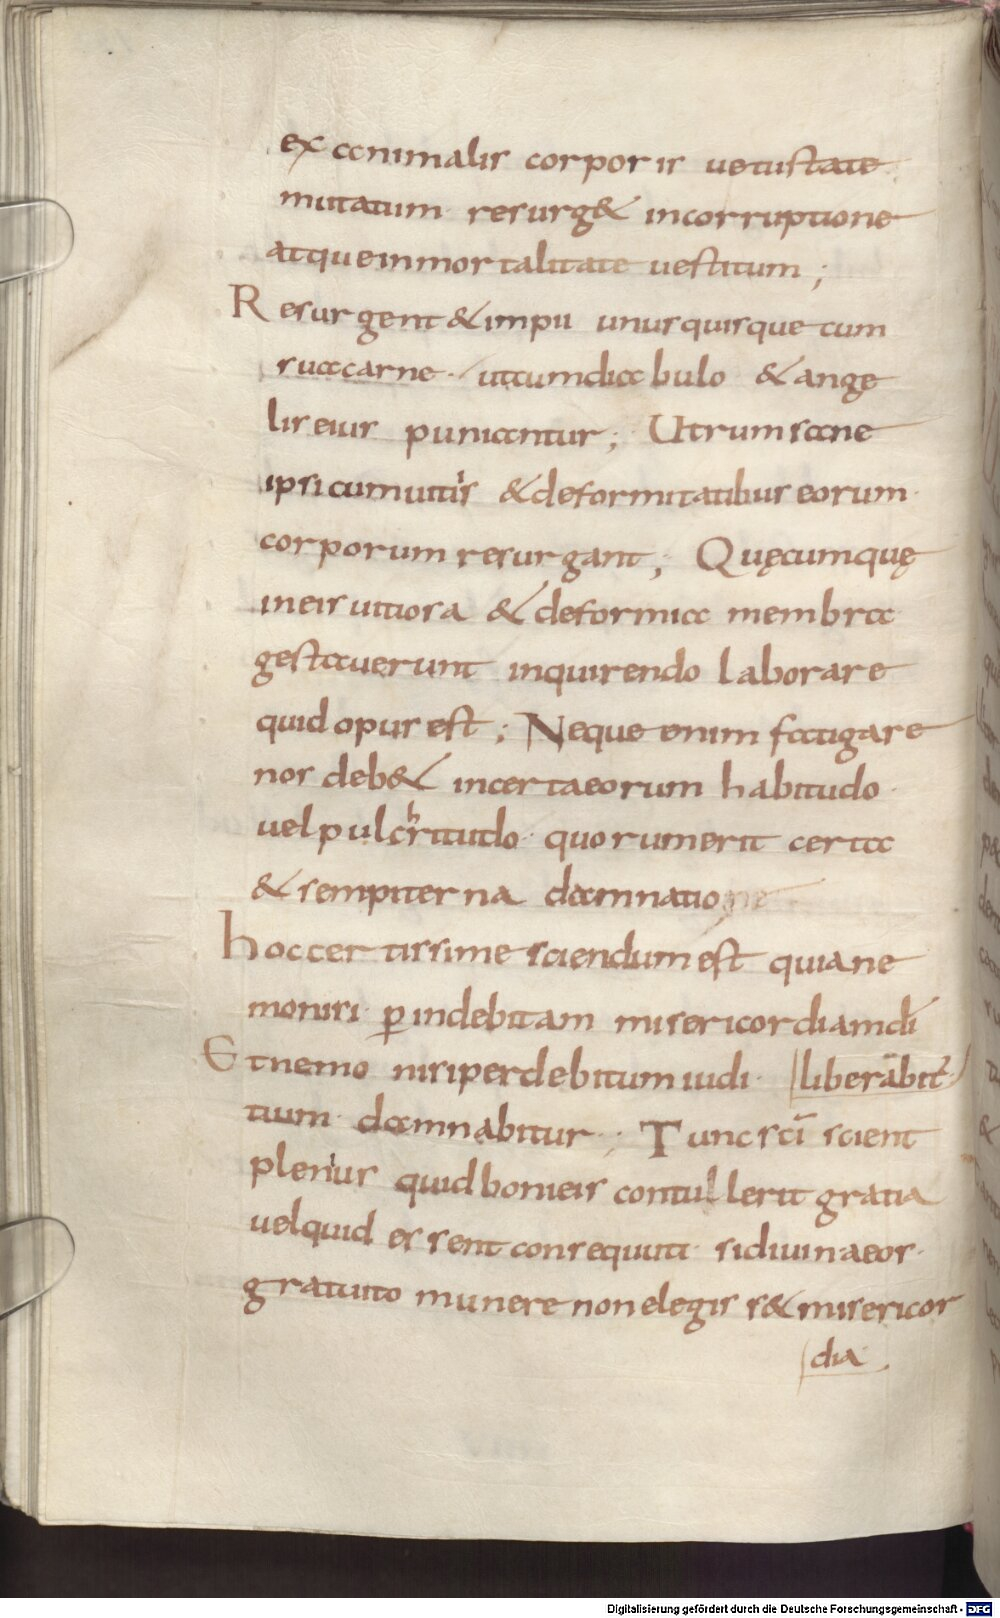 ex animalis corporis uetustate
mutatum resurg& incorruptione
atque inmortalitate uestitum ;
Resurgent & impii unusquisque cum
sua carne · ut cum diabulo & angę
lis eius puniantur ; Utrum sane
ipsi cum uitiis & deformitatibus eorum ·
corporum resurgant ; Quęcumquę
in eis uitiosa & deformia membra
gestauerunt inquirendo laborare
quid opus est ; Neque enim fatigare
nos deb& incerta eorum habitudo ·
uel pulchritudo · quorum erit certa
& sempiterna damnatione
hoc certissime sciendum est quia ne
mo nisi per indebitam misericordiam di
Et nemo nisi per debitum iudi · liberabit
tium · damnabitur · ; Tunc sci scient
plenius quid boni eis contullerit gratia
uel quid essent consequuti · si diuina eos ·
gratuito munere non elegiss& misericor
dia ·
Digitalisierung gefördert durch die Deutsche Forschungsgemeinschaft - DFG